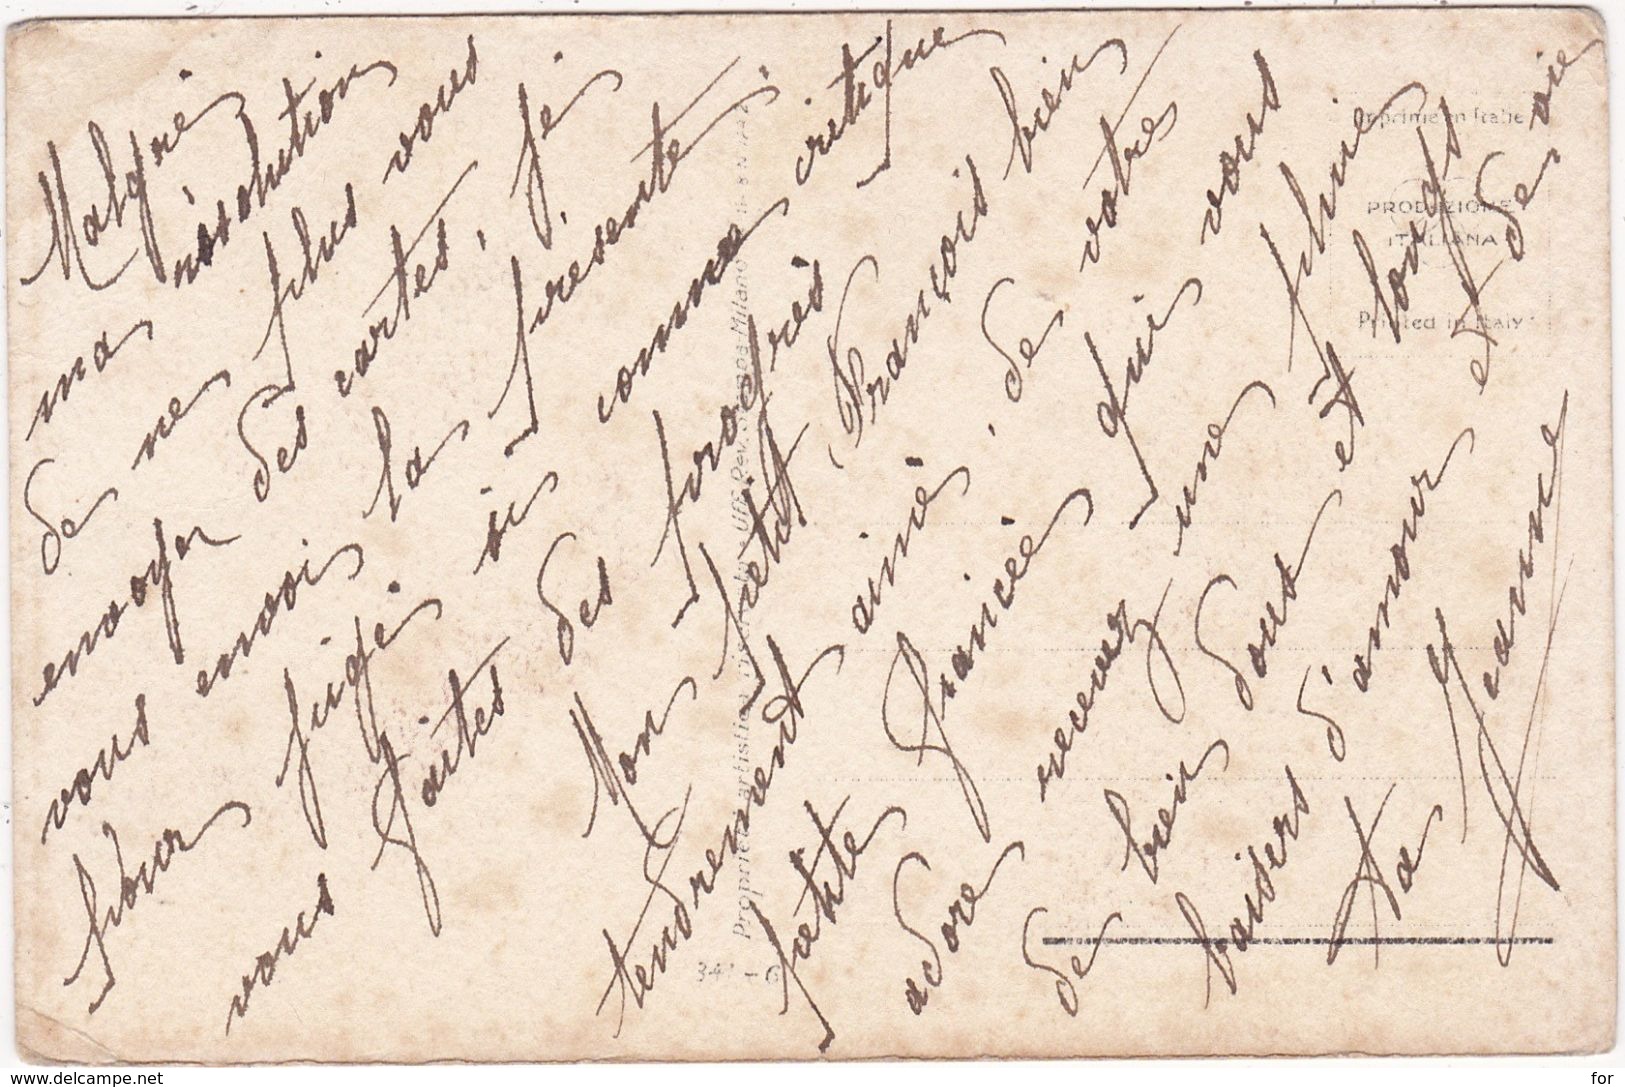 Malgré
ma résolution
de ne plus vous
envoyer des cartes, je
vous envoi la présente
pour juger si comme critique
vous faites des progrès
Mon petit François bien
tendrement aimé, de votre
petite fiancée qui vous
adore recevez une pluie
de bien doux et longs
baisers d'amour et de vie
Ta Jeanne
Imprimé en Italie
PRODUZIONE
ITALIANA
Printed in Italy
Proprietà artistica
Milano
www.delcampe.net
for